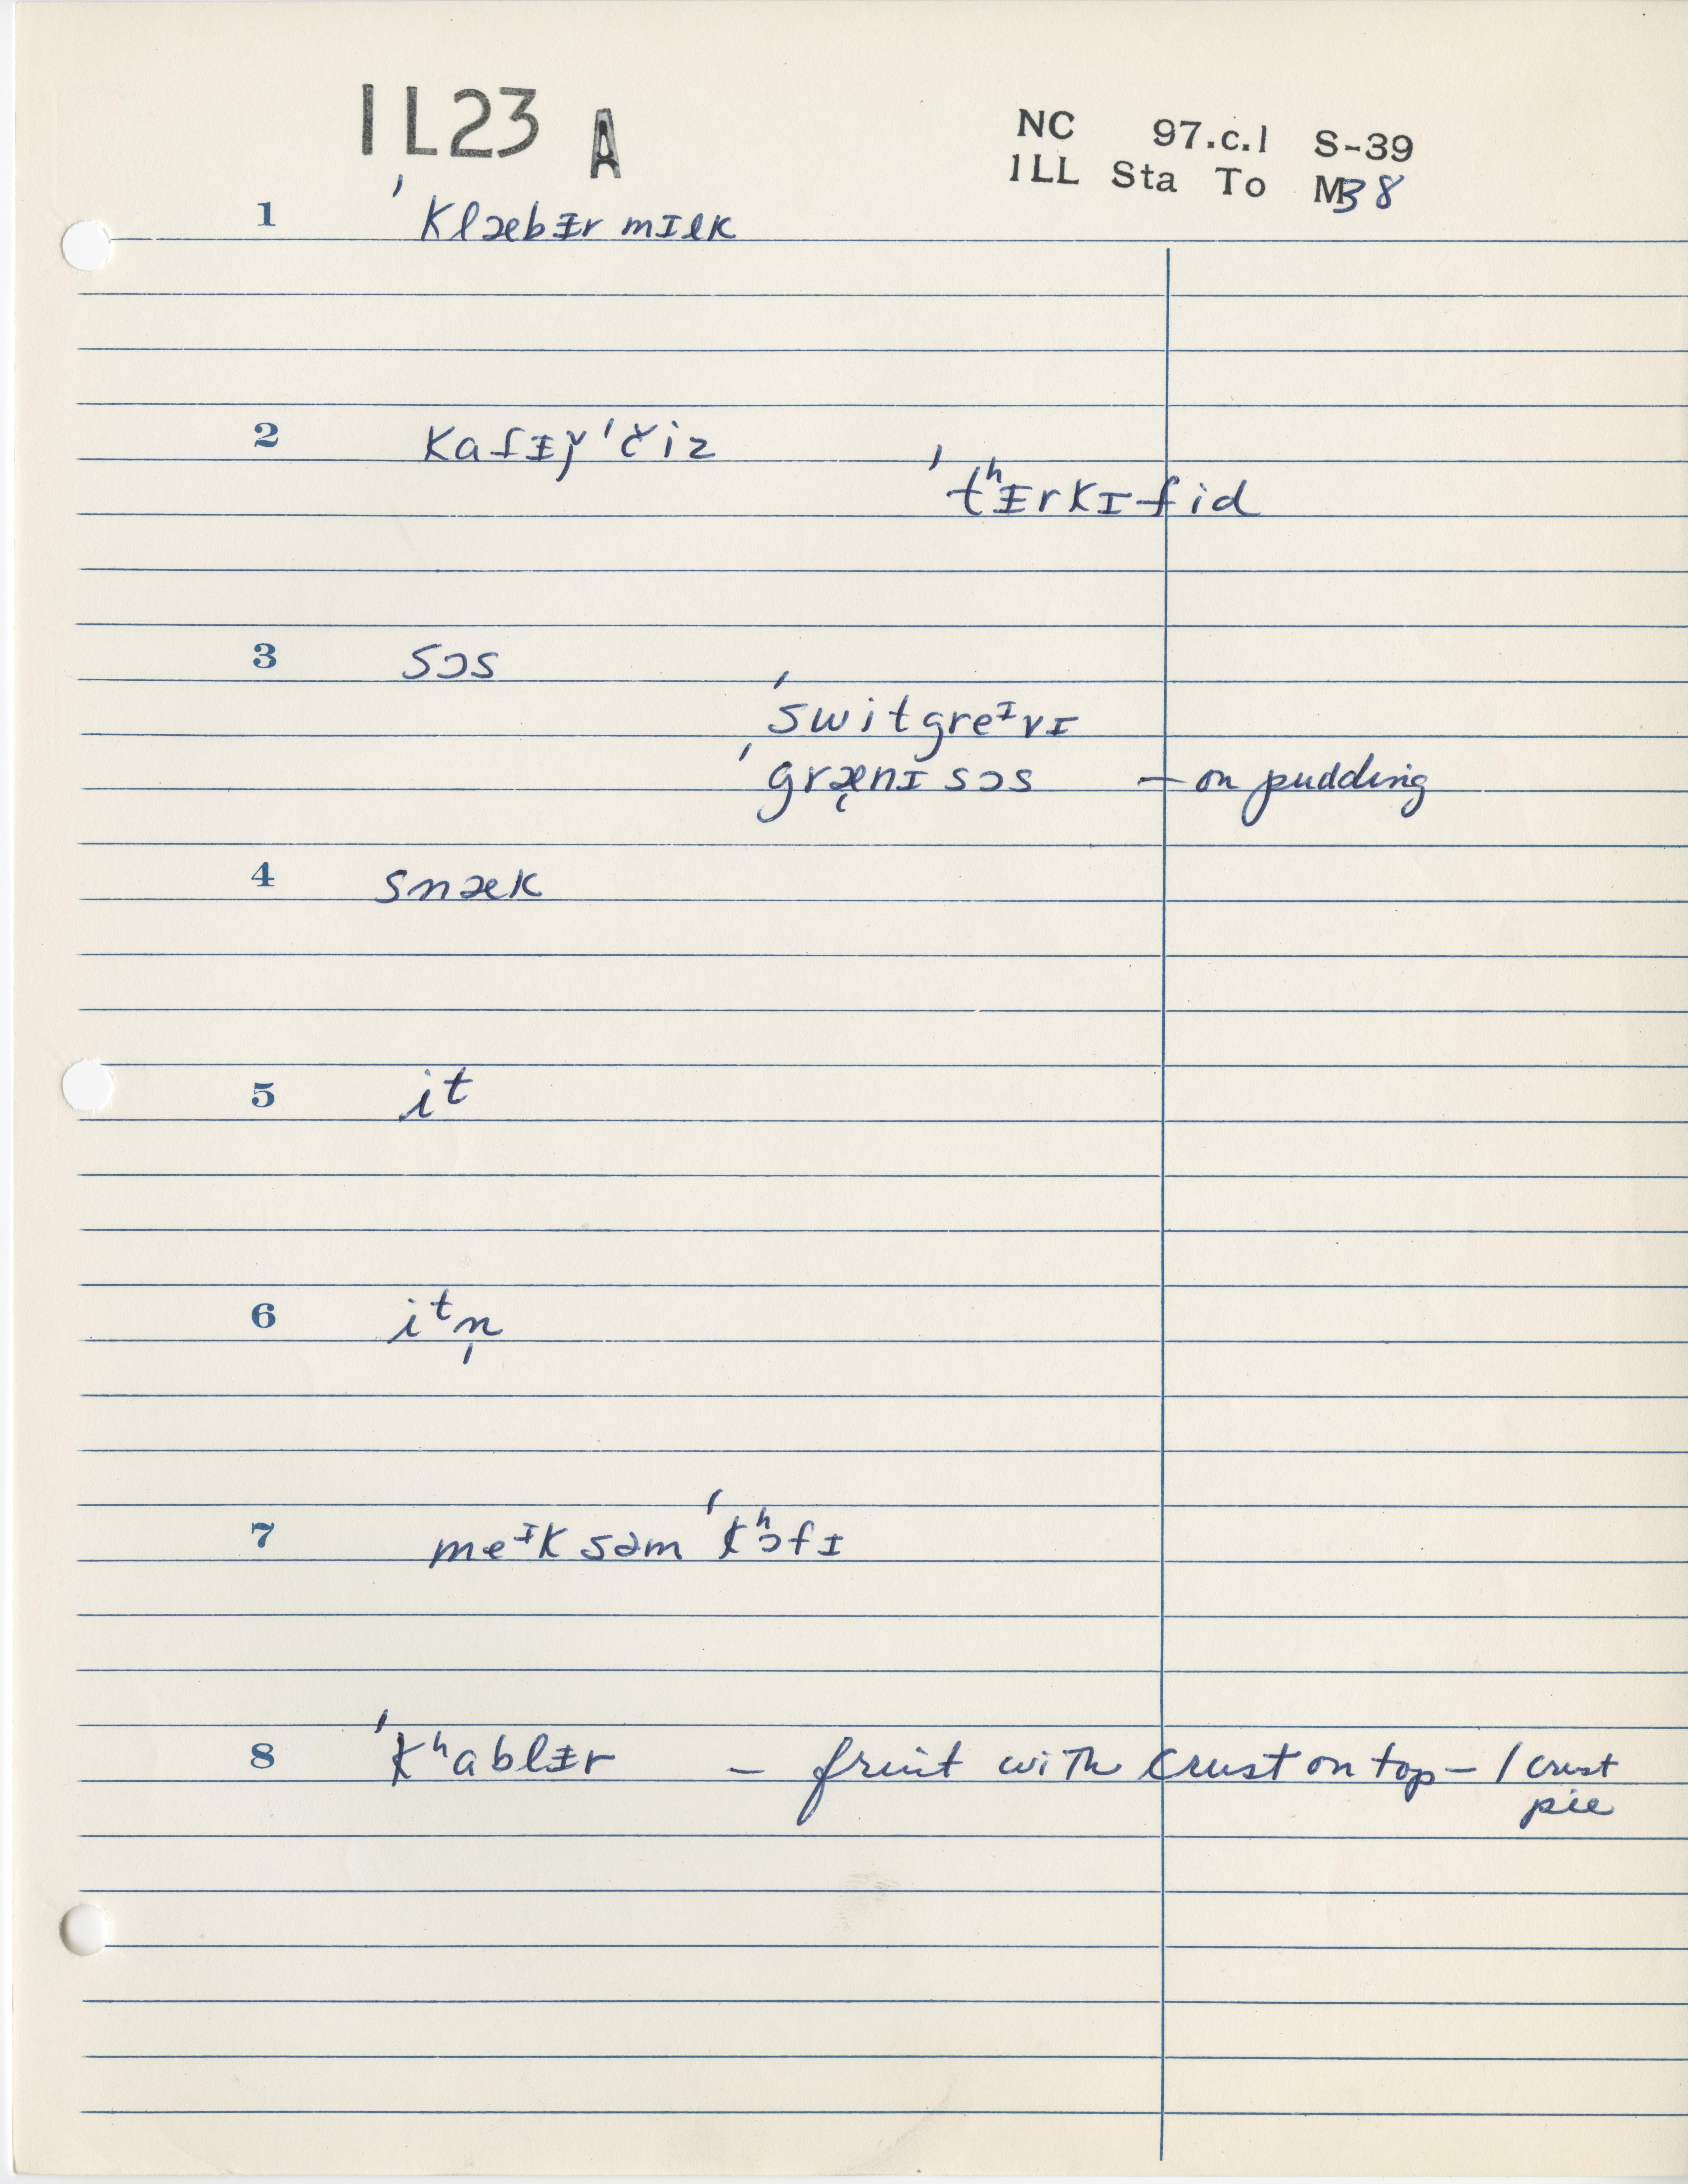 1L23 A
NC 97.c.1 S-39
1LL Sta To M38
1 ˈklæbɨr mɪlk
2 kaʃɪɣˈčiz
ˈtʰɨrkɪfid
3 sɔs
ˈswitgreᶦvɪ
ˈgræ̨nɪ sɔs — on pudding
4 snæk
5 it
6 iᵗn̩
7 meᶦk səm ˈkʰɔfɪ
8 ˈkʰablɨr – fruit with crust on top – 1 crust
pie